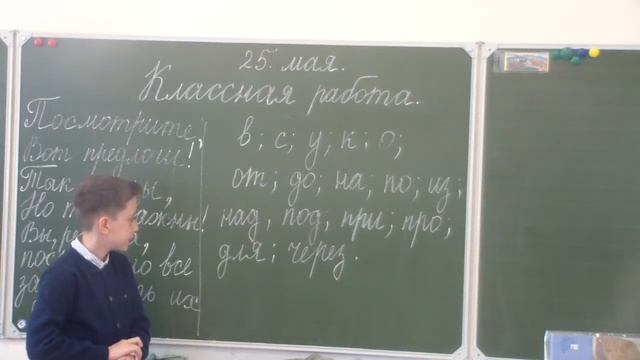 25. мая.
Классная работа.
Посмотрите,
Вот предлоги!
Так
Но
Вы,
все
их
в; с; у; к; о;
от; до; на; по; из;
над, под, при; про;
для; через.